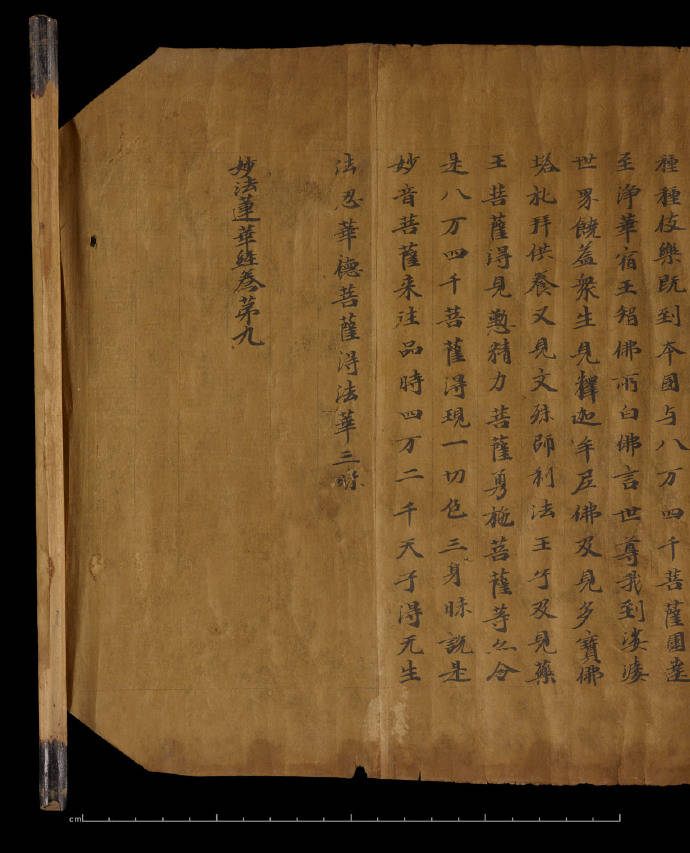 種種伎樂既到本國与八万四千菩薩圍遶
至淨華宿王智佛所白佛言世尊我到娑婆
世界饒益衆生見釋迦牟尼佛及見多寶佛
塔礼拜供養又見文殊師利法王子及見藥
王菩薩得見懃精力菩薩勇施菩薩等亦令
是八万四千菩薩得現一切色三身昧說是
妙音菩薩来往品時四万二千天子得无生
法忍華德菩薩得法華三昧
妙法蓮華經卷第九
cm